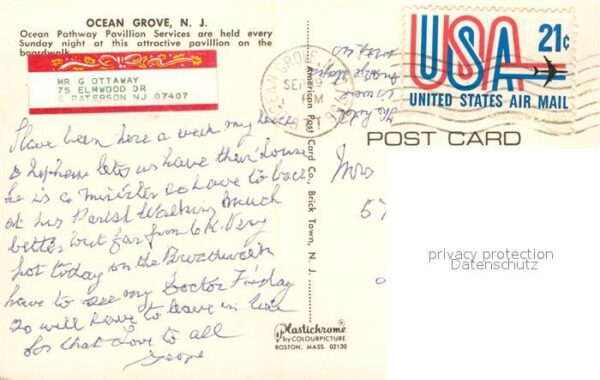 OCEAN GROVE, N. J.
Ocean Pathway Pavillion Services are held every
Sunday night at this attractive pavilion on the
boardwalk.
MR G OTTAWAY
75 ELMWOOD DR
E PATERSON NJ 07407
Have been here a week my
& Nephew lets us have their house
he is a minister & have to back
at his Parish Walking much
better but far from O.K. Very
hot today on the Broadwalk
have to see my Doctor Friday
So will have to leave in
for that Love to all
George
The
is near
SEP
PM
American Post Card Co., Brick Town, N. J.
Plastichrome
by COLOURPICTURE
BOSTON, MASS. 02130
USA 21¢
UNITED STATES AIR MAIL
POST CARD
Mrs
57
privacy protection
Datenschutz